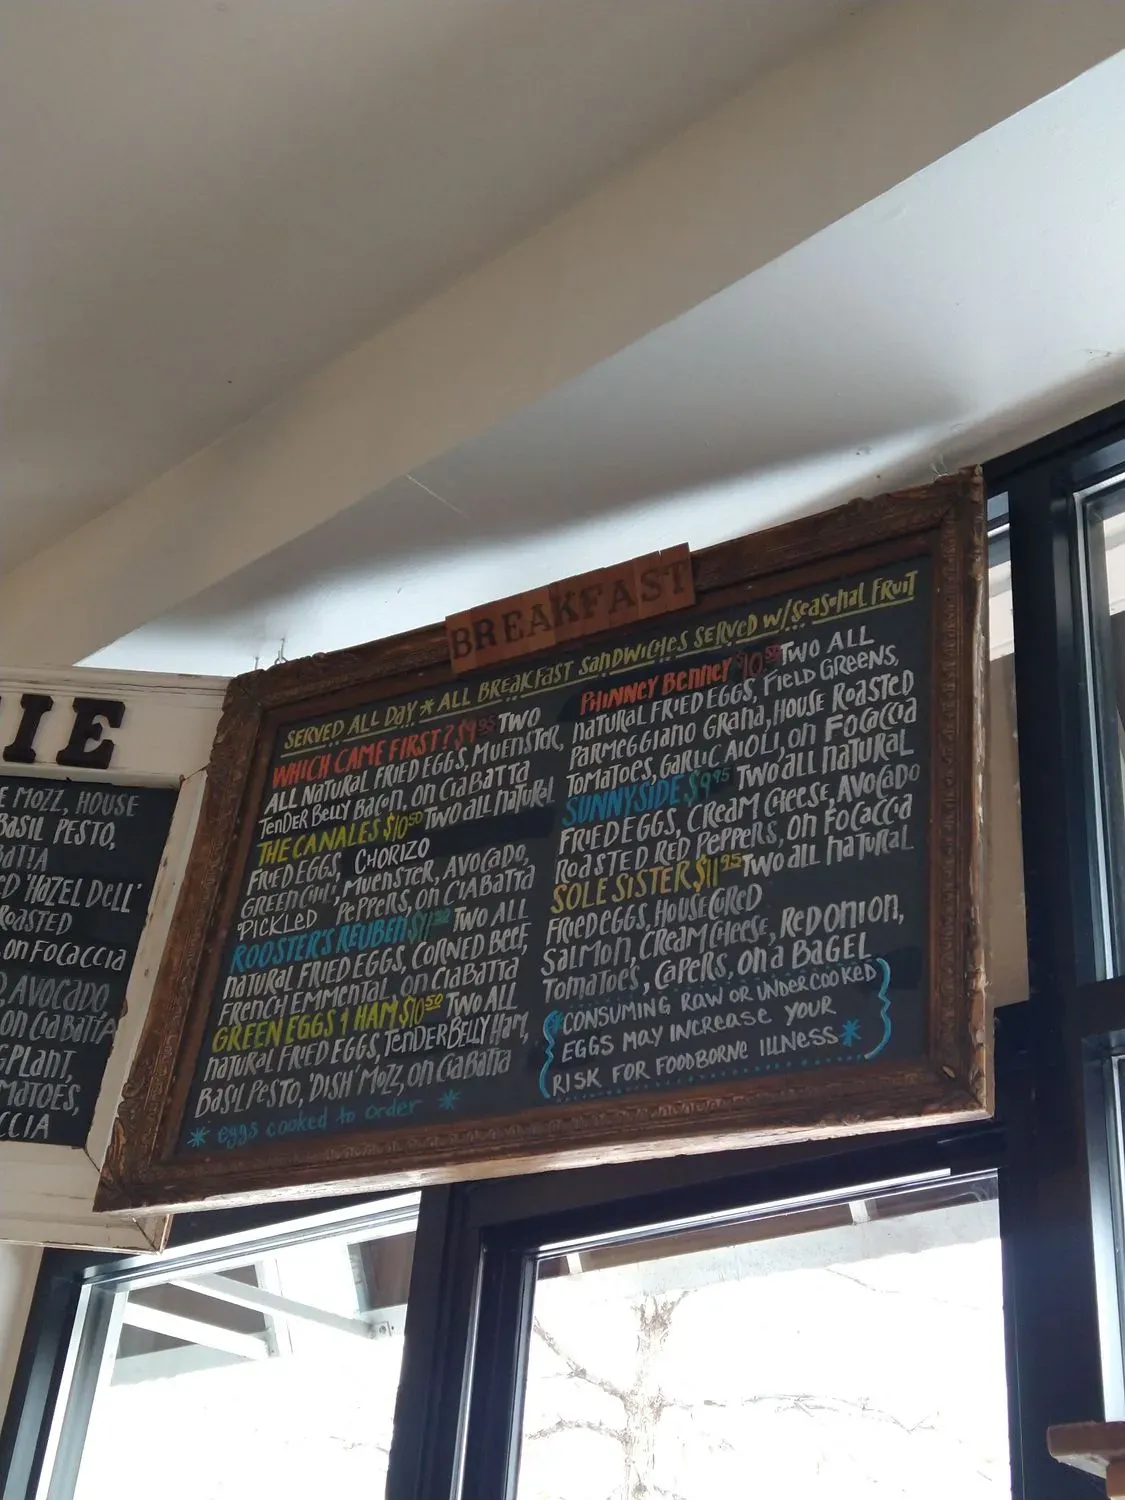 IE
E MOZZ, HOUSE
BASIL PESTO,
BATTA
ED 'HAZEL DELL'
ROASTED
, ON FOCACCIA
AVOCADO,
ON CIABATTA
GPLANT,
MATOES,
CCIA
BREAKFAST
SERVED ALL DAY * ALL BREAKFAST SANDWICHES SERVED W/SEASONAL FRUIT
WHICH CAME FIRST? $9.95 TWO
ALL NATURAL FRIED EGGS, MUENSTER,
TENDER BELLY BACON, ON CIABATTA
THE CANALES $10.50 TWO ALL NATURAL
FRIED EGGS, CHORIZO
GREEN CHILI, MUENSTER, AVOCADO,
PICKLED PEPPERS, ON CIABATTA
ROOSTER'S REUBEN TWO ALL
NATURAL FRIED EGGS, CORNED BEEF,
FRENCH EMMENTAL, ON CIABATTA
GREEN EGGS & HAM $10.50 TWO ALL
NATURAL FRIED EGGS, TENDERBELLY HAM,
BASIL PESTO, 'DISH' MOZZ, ON CIABATTA
* eggs cooked to order *
PHINNEY BENNEY $10.50 TWO ALL
NATURAL FRIED EGGS, FIELD GREENS,
PARMEGGIANO GRANA, HOUSE ROASTED
TOMATOES, GARLIC AIOLI, ON FOCACCIA
SUNNYSIDE $9.95 TWO ALL NATURAL
FRIED EGGS, CREAM CHEESE, AVOCADO
ROASTED RED PEPPERS, ON FOCACCIA
SOLE SISTER $11.95 TWO ALL NATURAL
FRIED EGGS, HOUSE CURED
SALMON, CREAM CHEESE, RED ONION,
TOMATOES, CAPERS, ON A BAGEL
*CONSUMING RAW OR UNDERCOOKED
EGGS MAY INCREASE YOUR
RISK FOR FOODBORNE ILLNESS*